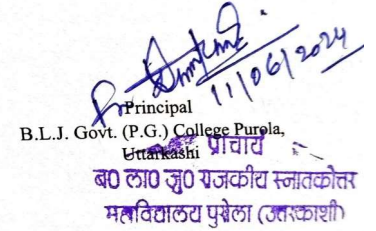 11/06/2024
Principal
B.L.J. Govt. (P.G.) College Purola,
Uttarkashi
प्राचार्य
ब0 ला0 जु0 राजकीय स्नातकोत्तर
महाविद्यालय पुरोला (उत्तरकाशी)